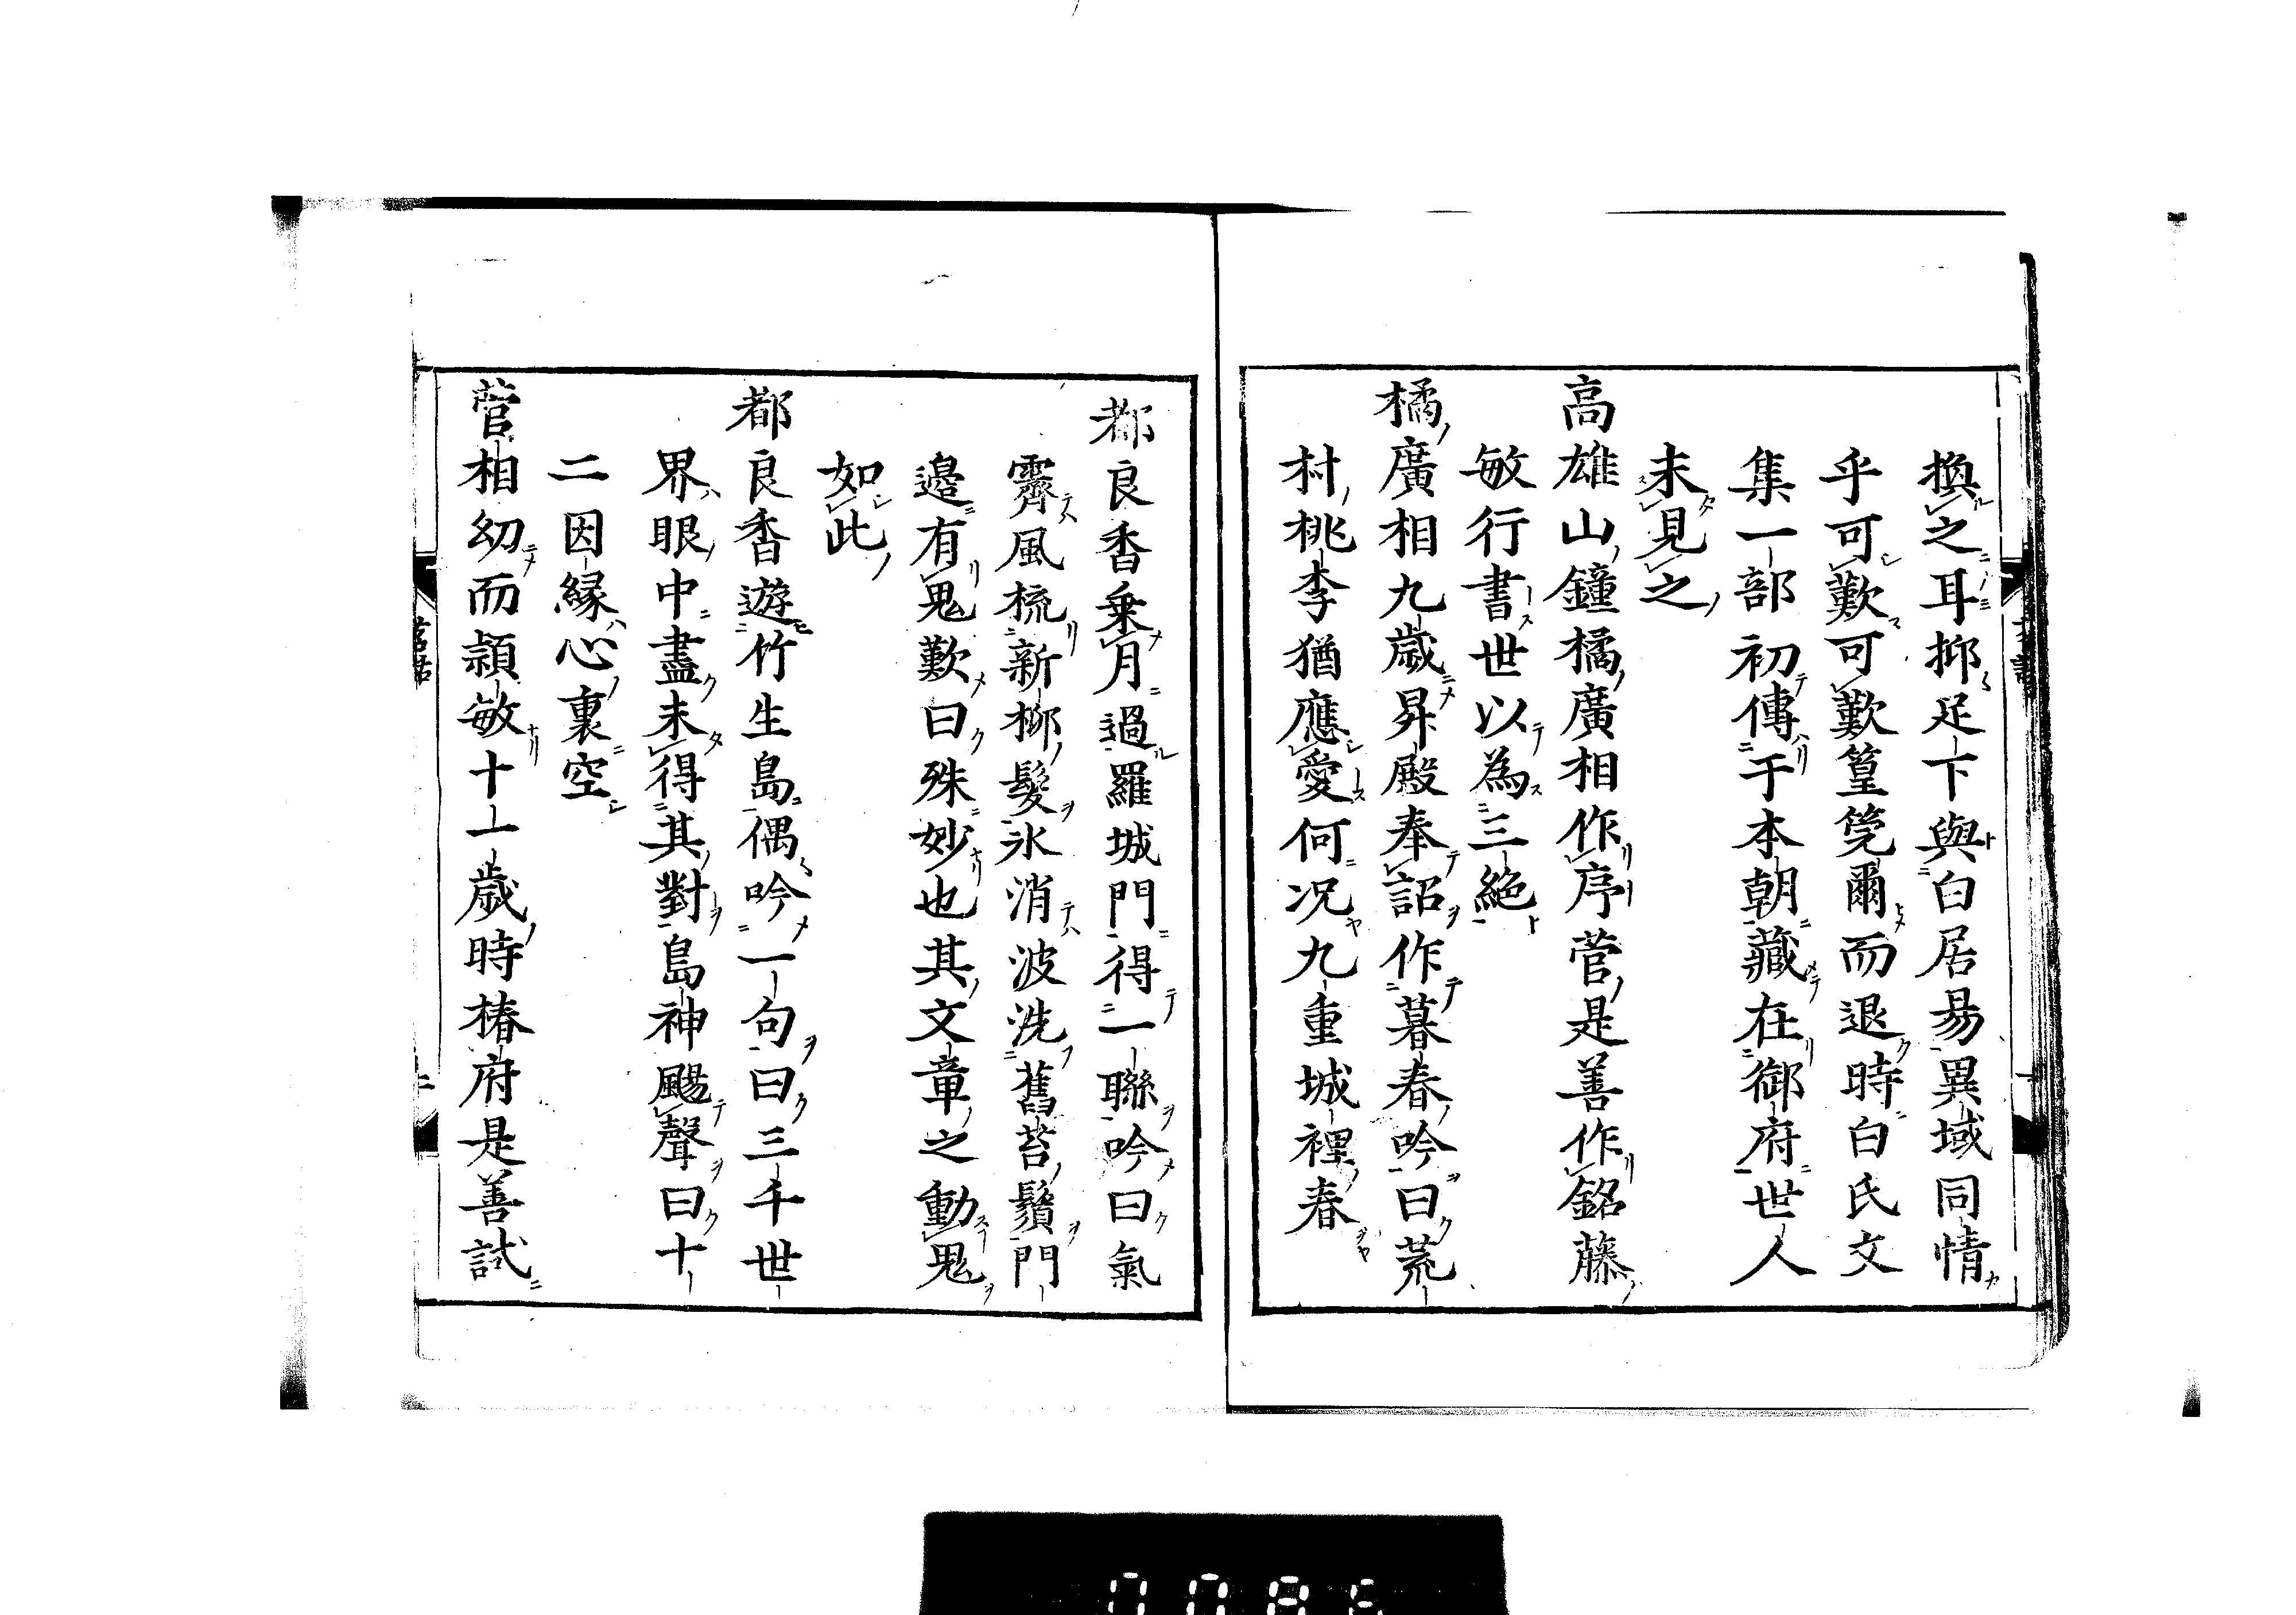 換之耳抑足下與白居易異域同情
乎可歎可歎篁筦爾而退時白氏文
集一部初傳于本朝藏在御府世人
未見之
高雄山鐘橘廣相作序菅是善作銘藤
敏行書世以為三絶
橘廣相九歳昇殿奉詔作暮春吟曰荒
村桃李猶應愛何况九重城裡春
都良香乗月過羅城門得一聯吟曰氣
霽風梳新柳髮氷消波洗舊苔鬚門
邉有鬼歎曰殊妙也其文章之動鬼
如此
都良香遊竹生島偶吟一句曰三千世
界眼中盡未得其對島神颺聲曰十
二因縁心裏空
菅相幼而頴敏十一歳時椿府是善試